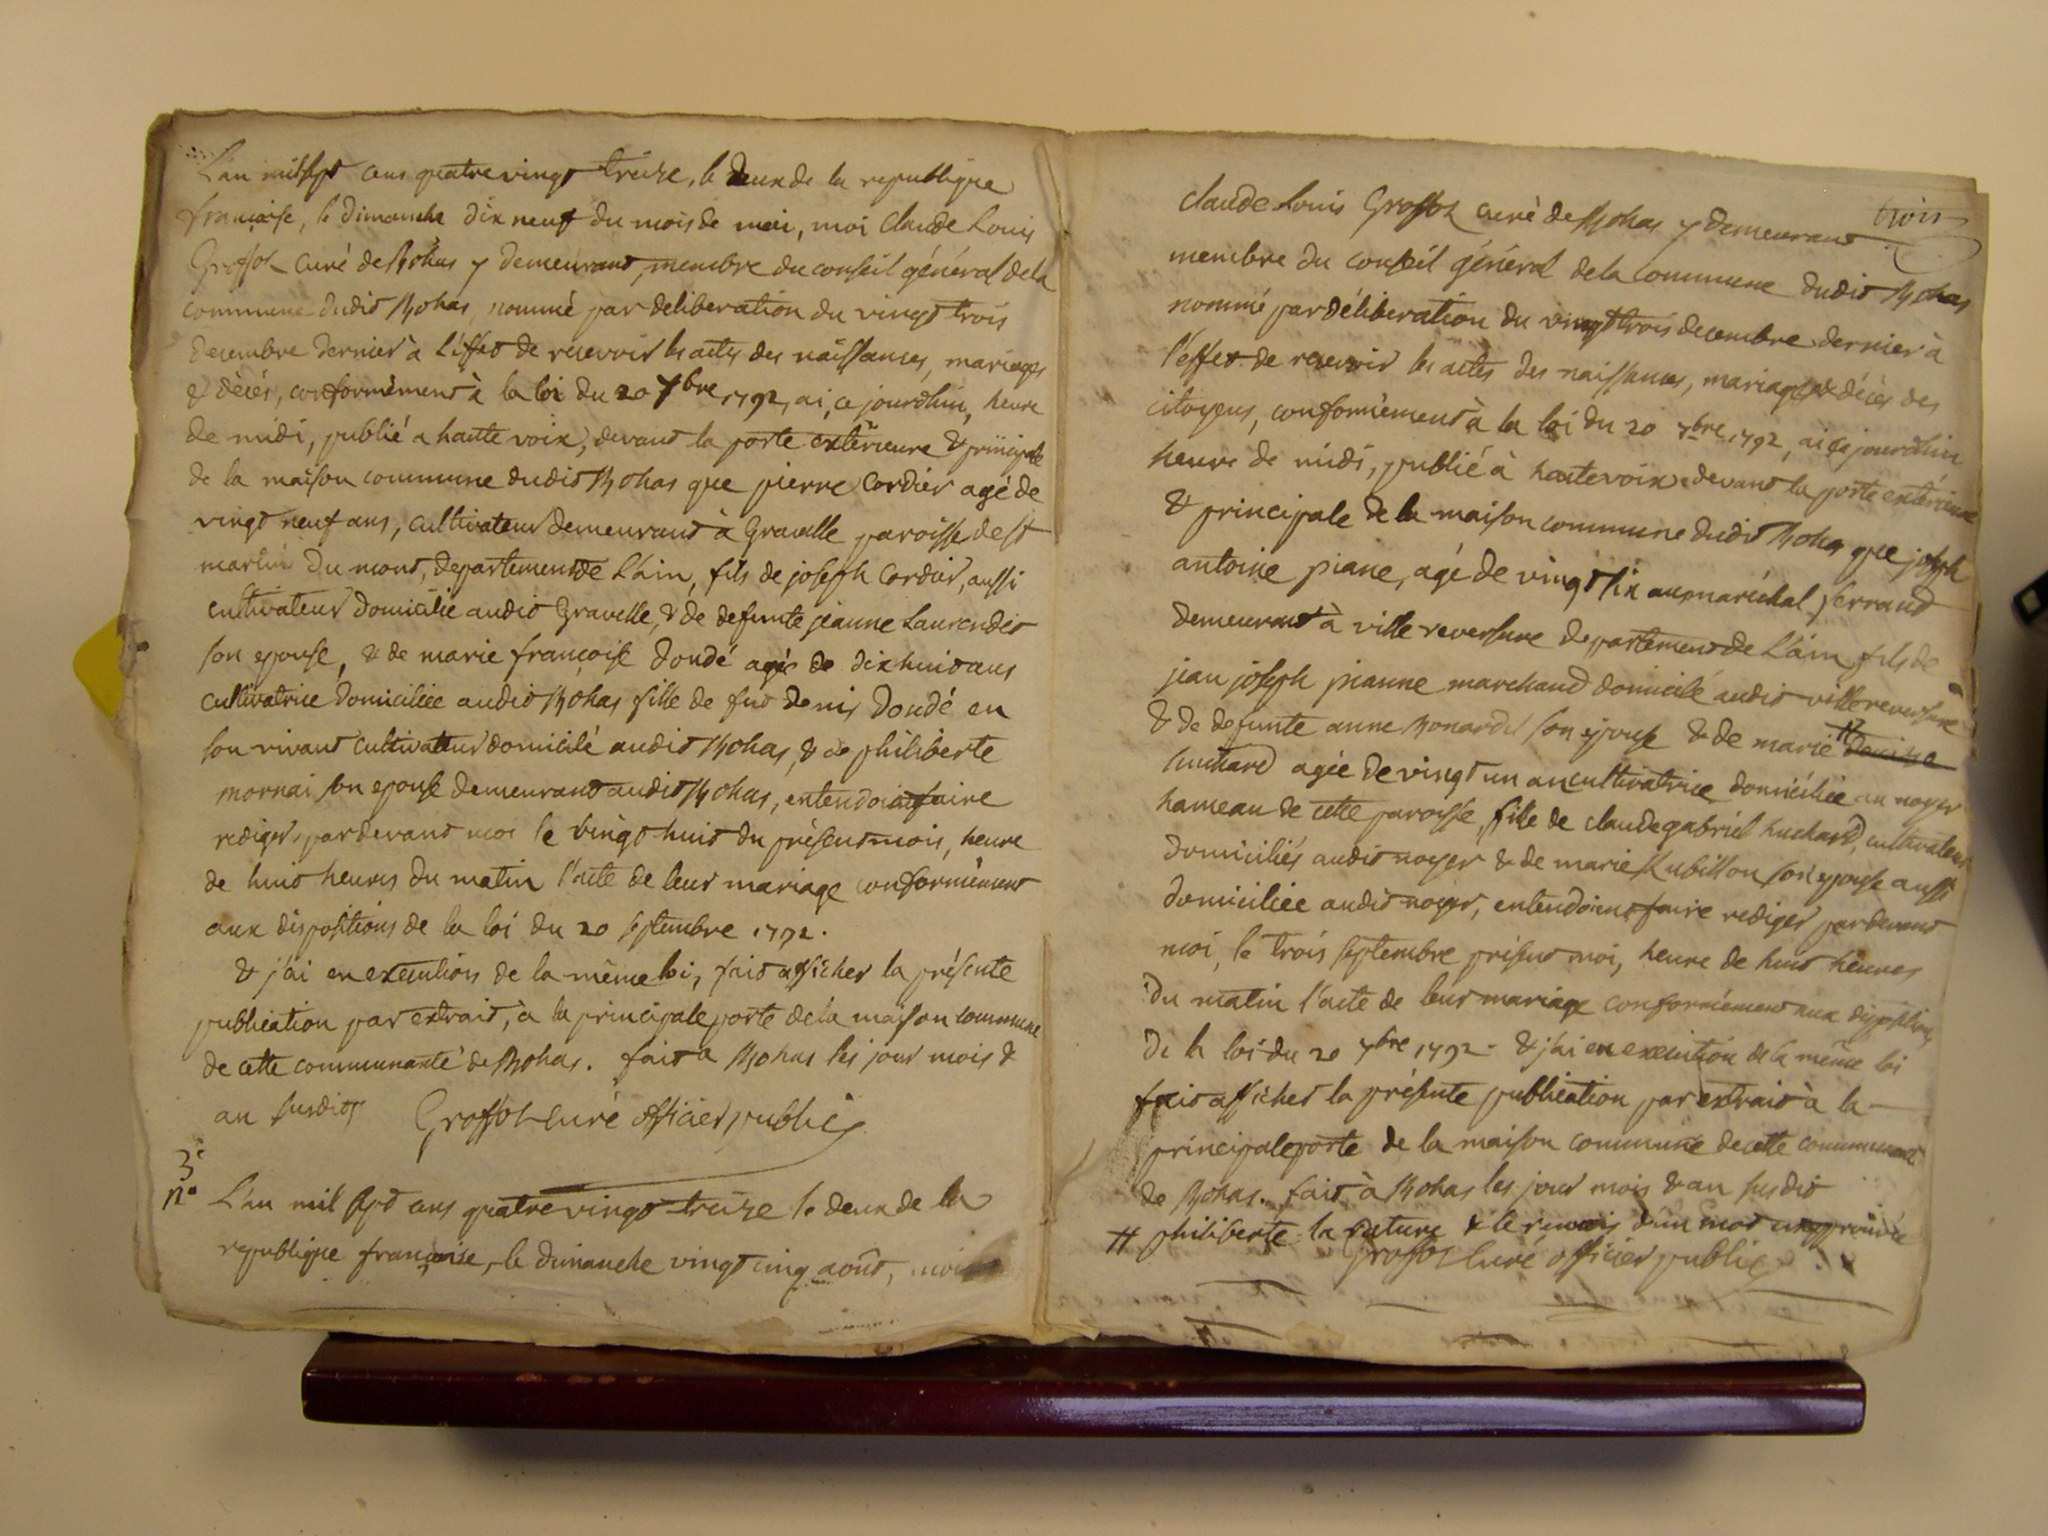 L'an mil sept cens quatre vingt treize, le deux de la republique
françoise, le dimanche dix neuf du mois de mai, moi Claude Louis
Grossot curé de Bohas y demeurant, membre du conseil général de la
commune dudit Bohas, nommé par deliberation du vingt trois
decembre dernier à l'effet de recevoir les actes des naissances, mariages
& décés, conformément à la loi du 20 7bre 1792, ai, ce jourdhui, heure
de midi, publié a haute voix, devant la porte extérieure & principale
de la maison commune dudit Bohas que pierre Cordier agé de
vingt neuf ans, cultivateur demeurant à Gravelle paroisse de st
martin du mont, departement de L'ain, fils de joseph Cordier, aussi
cultivateur domicilié audit Gravelle, & de defunte jeanne Laurendet
son epouse, & de marie françoise Dondé agée de dix huit ans
cultivatrice domiciliée audit Bohas fille de fut denis Dondé en
son vivant cultivateur domicilé audit Bohas, & de philiberte
mornai son epouse demeurant audit Bohas, entendoient faire
rediger pardevant moi le vingt huit du présent mois, heure
de huit heures du matin l'acte de leur mariage conformément
aux dispositions de la loi du 20 septembre 1792.
& j'ai en execution de la même loi, fait afficher la présente
publication par extrait, à la principale porte de la maison commune
de cette communauté de Bohas. fait a Bohas les jour mois &
an susdits Grossot curé officier public
3e
no L'an mil sept cens quatre vingt treize le deux de la
republique françoise, le dimanche vingt cinq août, moi
trois
claude Louis Grossot curé de Bohas y demeurant
membre du conseil général de la commune dudit Bohas
nommé par déliberation du vingt trois decembre dernier à
l'effet de recevoir les actes des naissances, mariages & décès des
citoyens, conformément à la loi du 20 7bre 1792, ai ce jourdhui
heure de midi, publié à haute voix devant la porte extérieure
& principale de la maison commune dudit Bohas que joseph
antoine piane, agé de vingt six ans maréchal ferrand
demeurant à ville reversure departement de L'ain fils de
jean joseph pianne marchand domicilé audit ville reversure
& de defunte anne Bonardel son epouse & de marie # denise
huchard agée de vingt un an cultivatrice domiciliée au noyer
hameau de cette paroisse, fille de claude gabriel huchard, cultivateur
domiciliés audit noyer & de marie Rubillon son epouse aussi
domiciliée audit noyer, entendoient faire rediger pardevant
moi, le trois septembre présent moi, heure de huit heures
du matin l'acte de leur mariage conformément aux dispositions
de la loi du 20 7bre 1792. & j'ai en execution de la même loi
fait afficher la présente publication par extrait à la
principale porte de la maison commune de cette communauté
de Bohas. fait à Bohas les jour mois & an susdit
# philiberte la rature & le renvois d'un mot approuvée
Grossot curé officier public